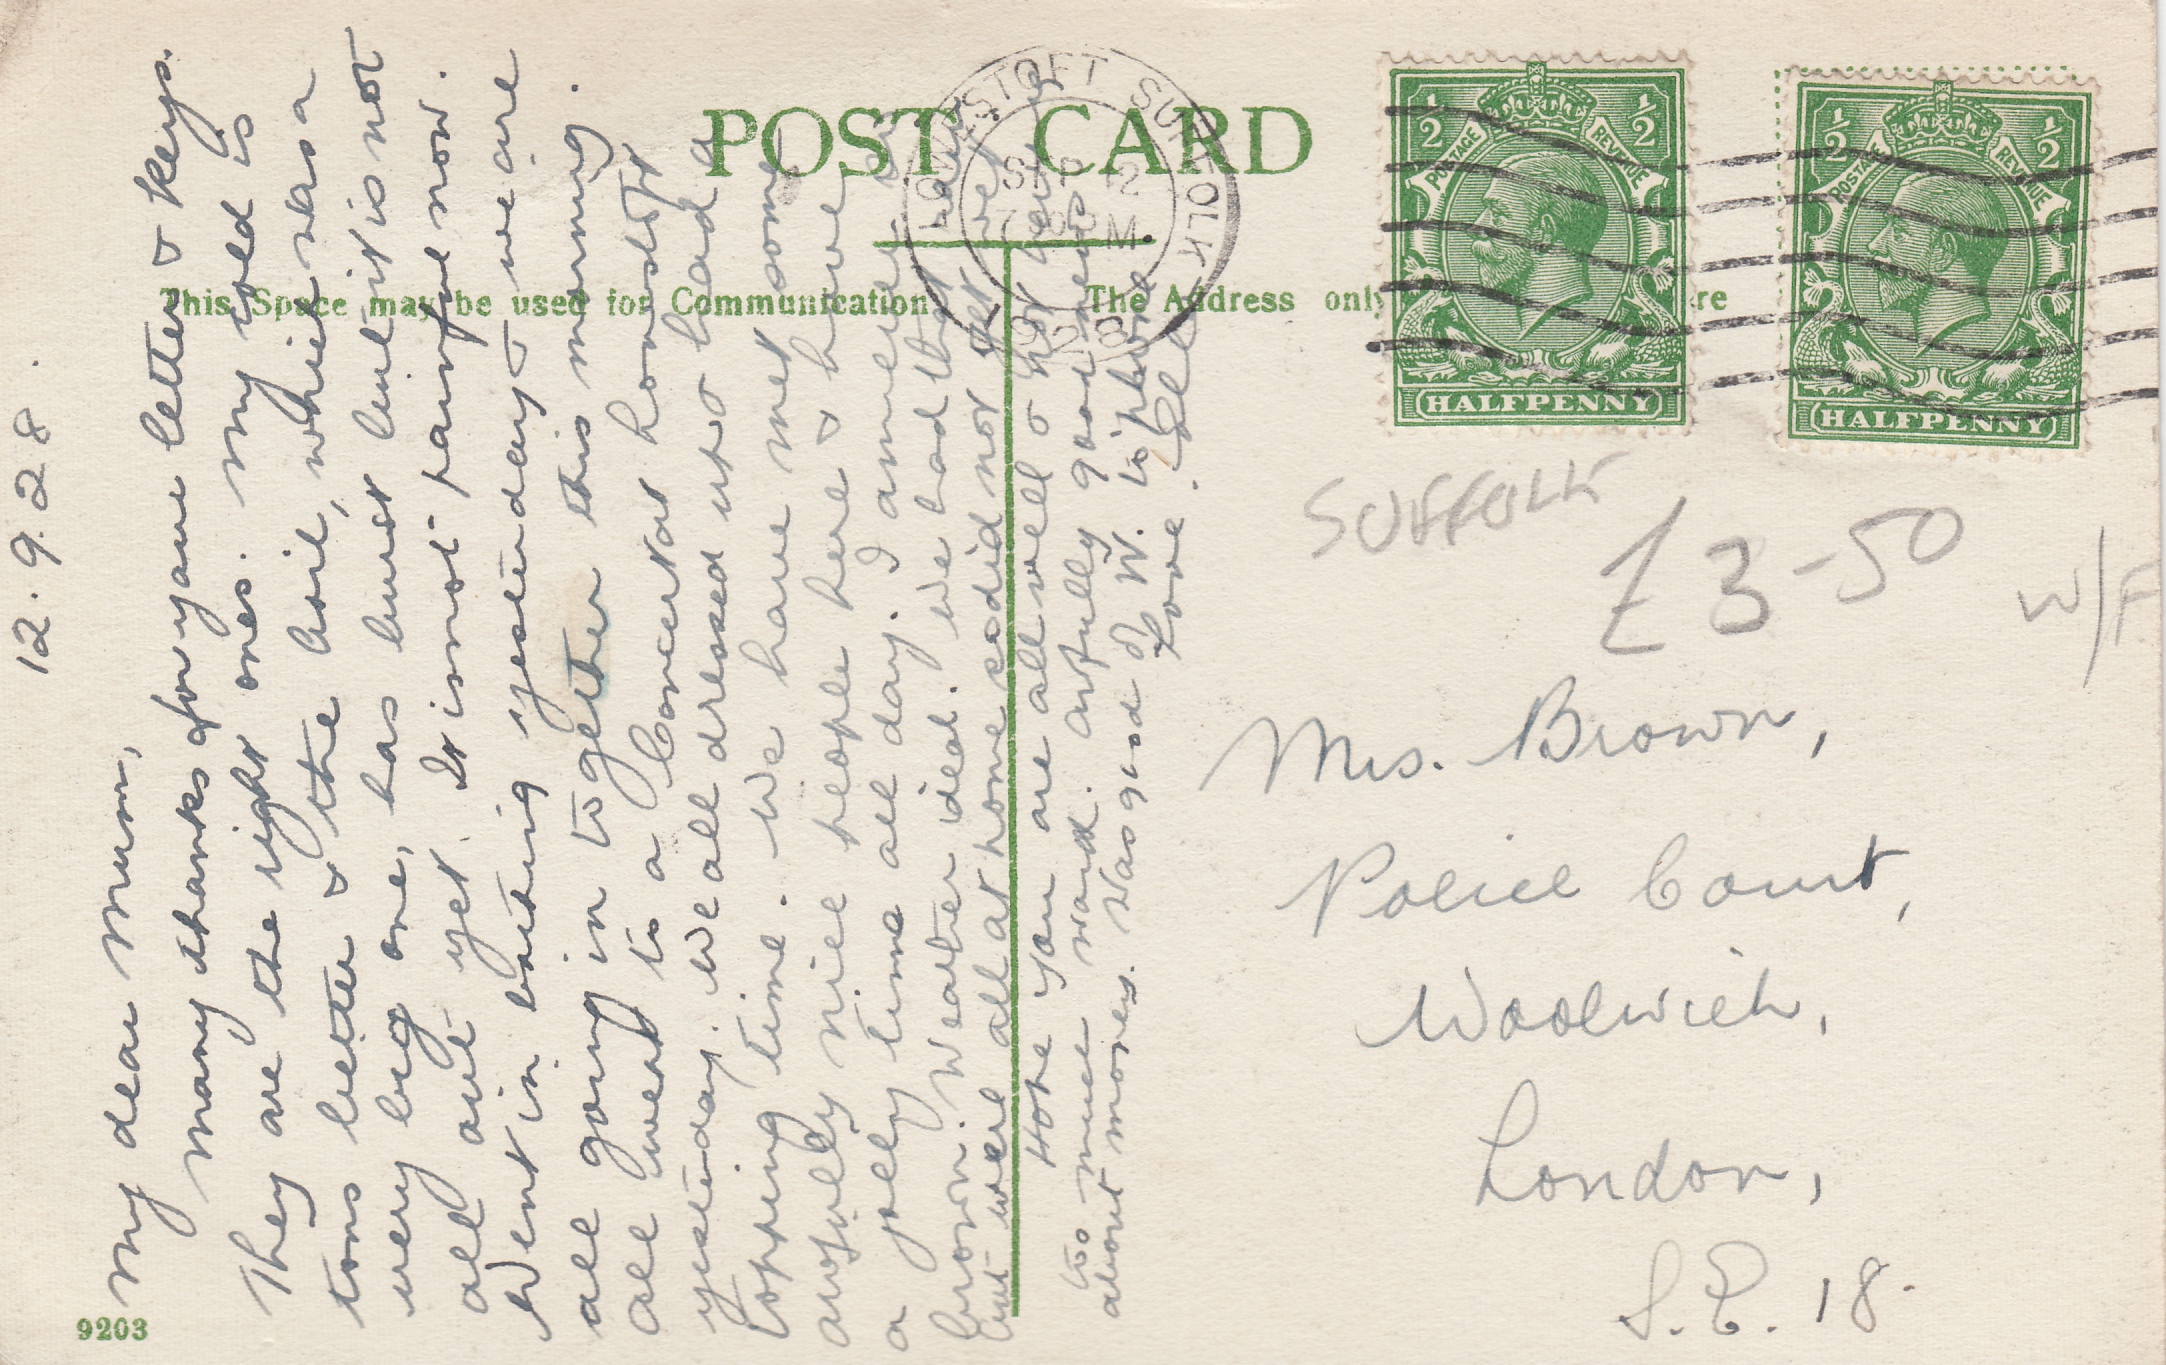 POST CARD
This Space may be used for Communication
The Address only
re
LOWESTOFT SUFFOLK
SEP 12
1928
½ ½
POSTAGE REVENUE
HALFPENNY
½ ½
POSTAGE REVENUE
HALFPENNY
SUFFOLK
£3-50
W/F
12.9.28.
My dear Mum,
Many thanks for your letter & keys.
They are the right ones. My cold is
tons better & the boil, which was a
very big one, has burst but it is not
all out yet. It is not painful now.
Went in bathing yesterday & we are
all going in together this morning.
All went to a Concert at
yesterday. We all dressed up & had a
topping time. We have met some
awfully nice people here & have
a jolly time all day. I am
brown. Weather ideal. We had
but were all at home so did not get wet
Hope you are all well & not
too much work. Awfully good news
about money. Was good of W. to phone
Love.
Mrs. Brown,
Police Court,
Woolwich,
London,
S.E. 18.
9203